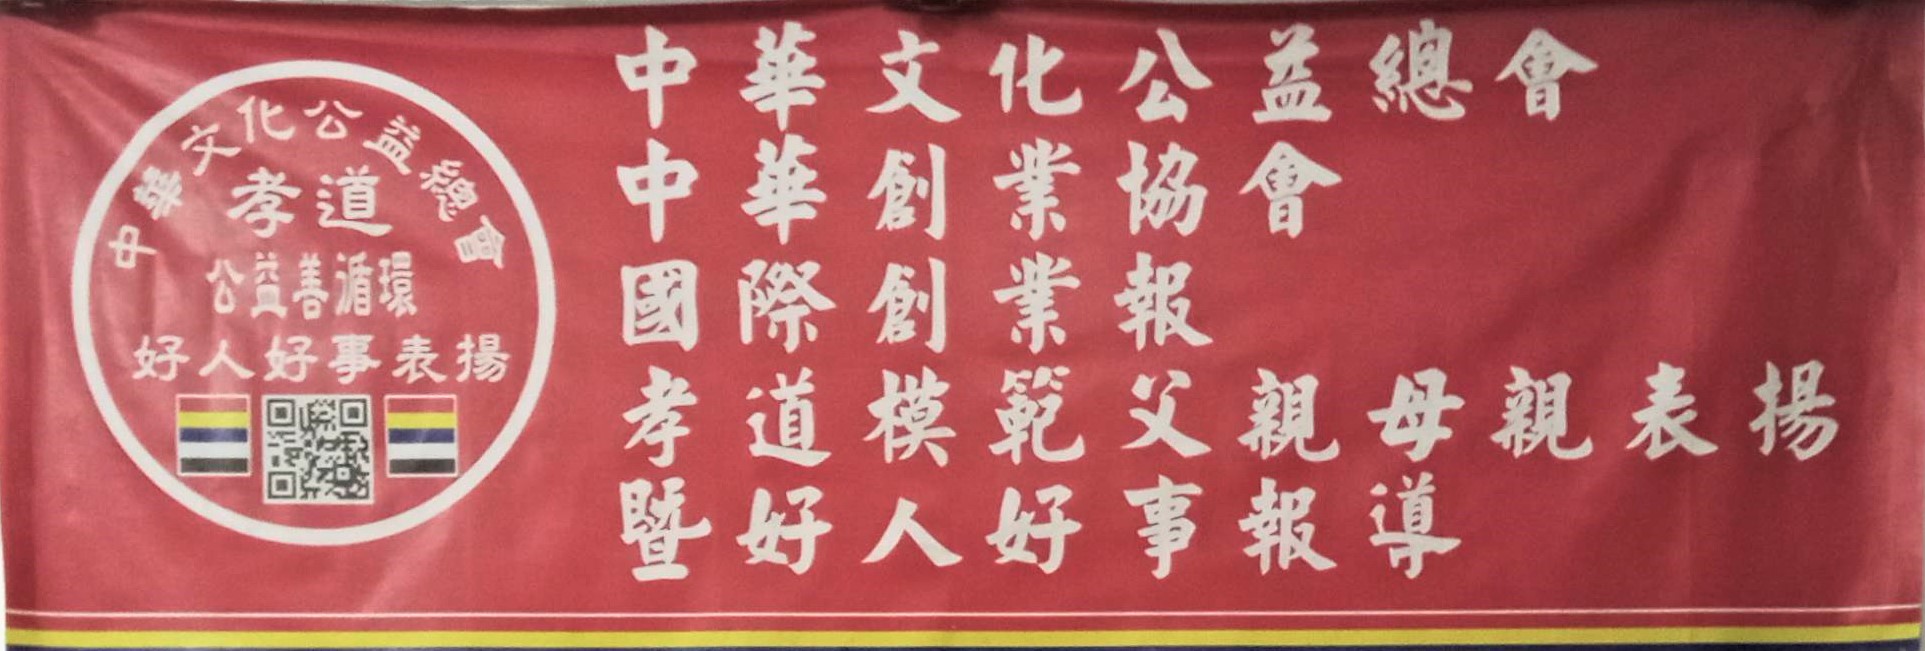 中華文化公益總會
孝道
公益善循環
好人好事表揚
中華文化公益總會
中華創業協會
國際創業報
孝道模範父親母親表揚
暨好人好事報導